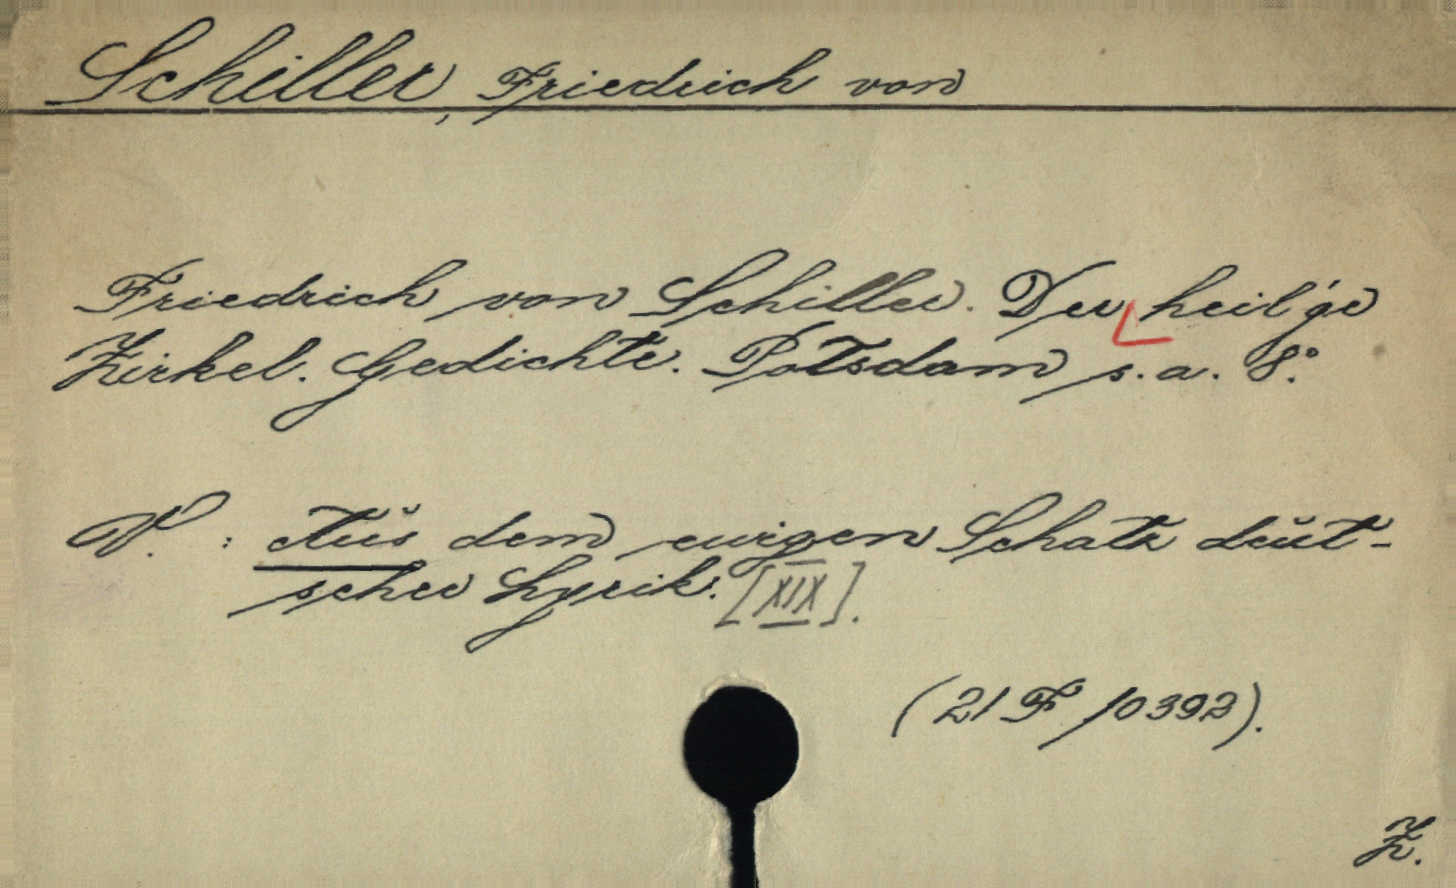 Schiller, Friedrich von
Friedrich von Schiller. Der heil'ge
Zirkel. Gedichte. Potsdam s. a. 8°.
V. : Aus dem ewigen Schatz deut-
scher Lyrik. [XIX].
(21 F 10393).
Z.